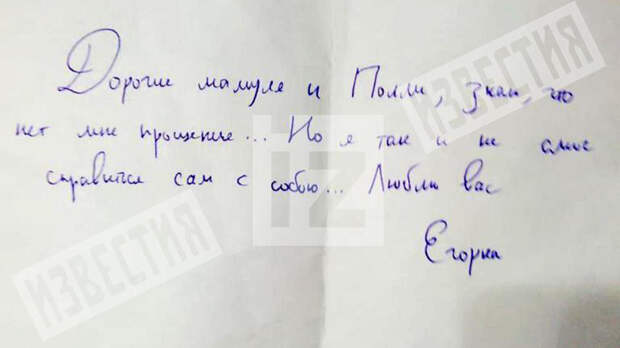 Дорогие мамуля и Полли, знаю, что
нет мне прощенье... Но я так и не смог
справится сам с собою... Люблю вас
Егорка
ИЗВЕСТИЯ
ИЗВЕСТИЯ
ИЗВЕСТИЯ
iz